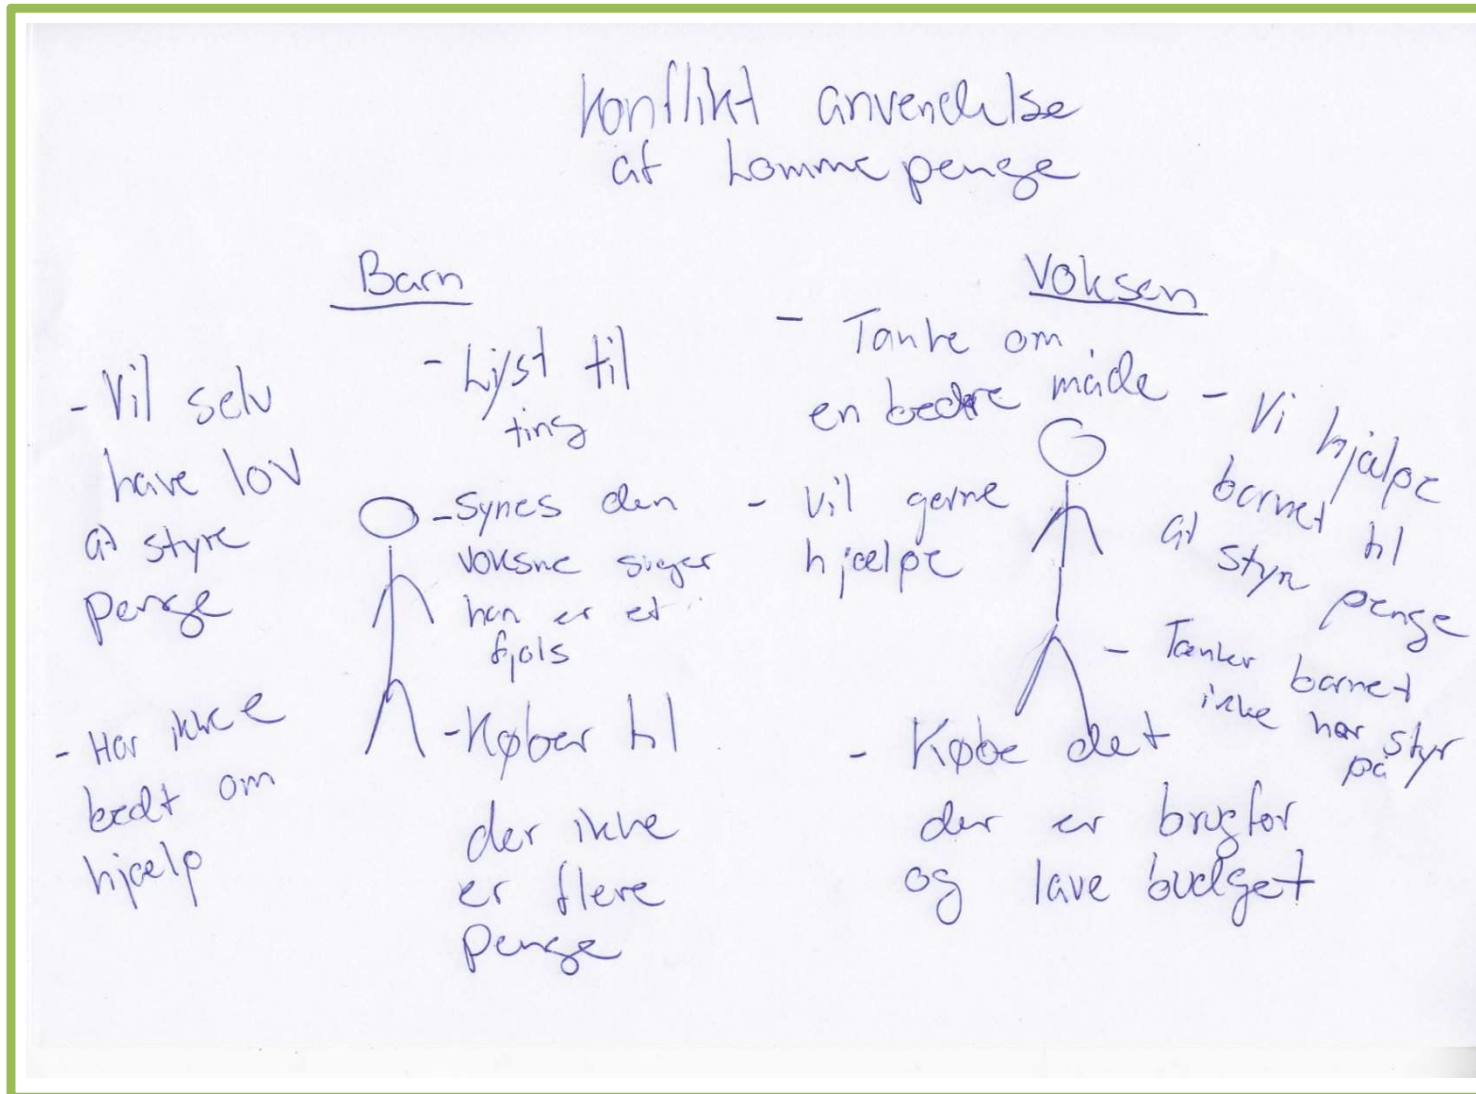 Konflikt anvendelse
af lommepenge
Barn
- Vil selv
have lov
at styre
penge
- Har ikke
bedt om
hjælp
- Lyst til
ting
- Synes den
voksne siger
han er et
fjols
- Køber til
der ikke
er flere
penge
Voksen
- Tanke om
en bedre måde
- Vil gerne
hjælpe
- Købe det
der er brug for
og lave budget
- Vi hjælpe
barnet til
at styre penge
- Tænker barnet
ikke har styr
på